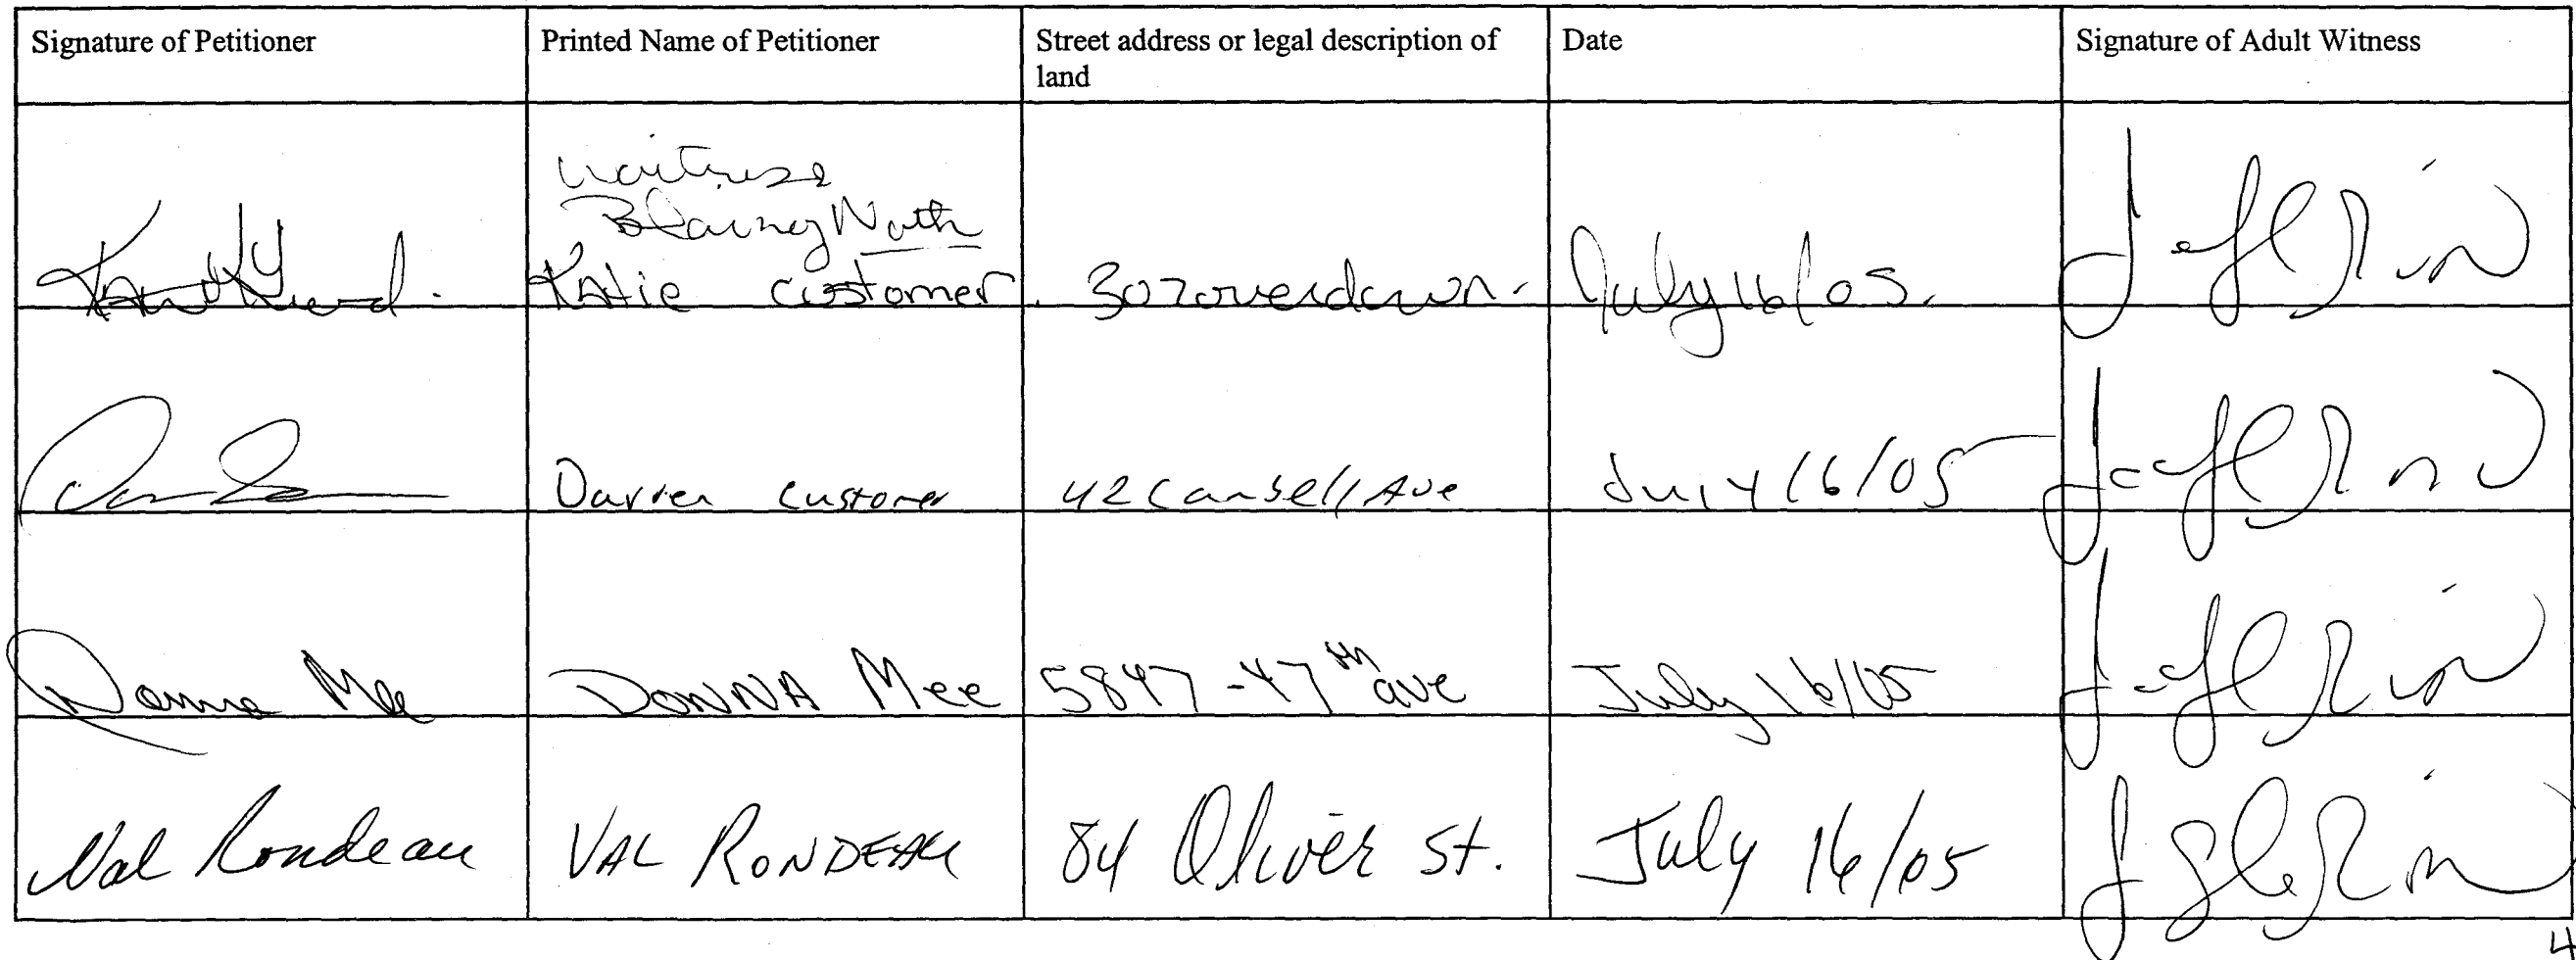 Signature of Petitioner
Printed Name of Petitioner
Street address or legal description of
land
Date
Signature of Adult Witness
waitress
Katie customer. 307 overdown. July 16/05.
Darren customer 42 Cansell Ave July 16/05
Donna Mee DONNA Mee 5847-47th ave July 16/05
Val Rondeau VAL RONDEAU 84 Oliver St. July 16/05
4